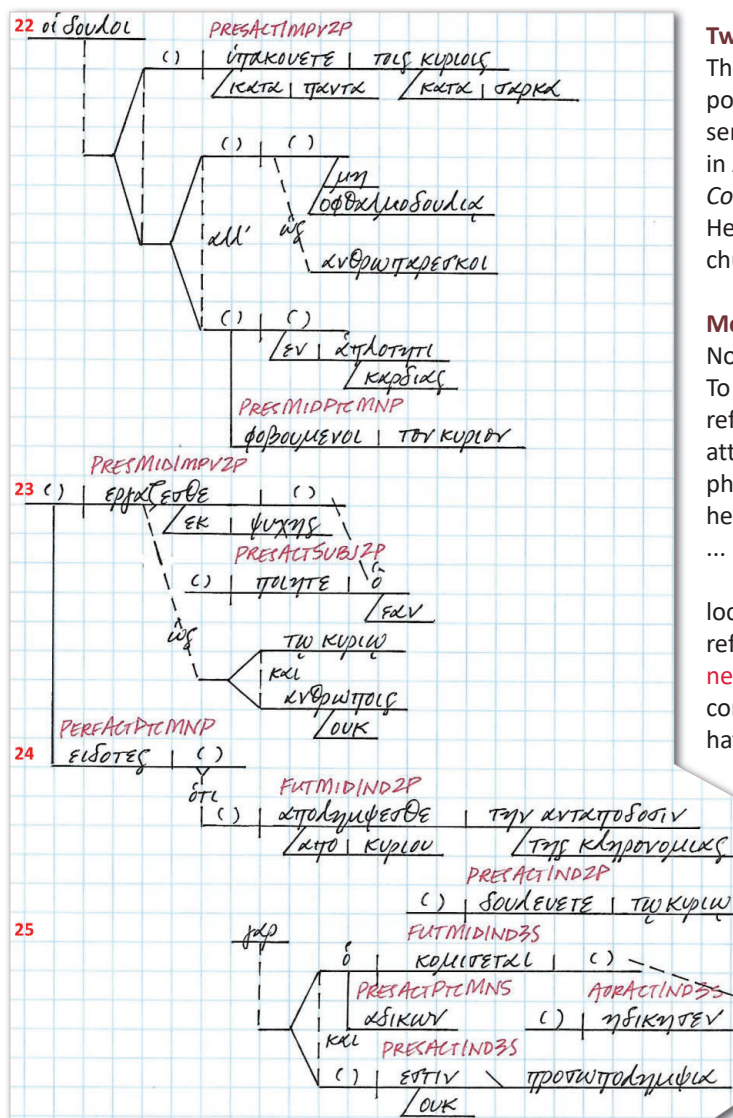 22 οἱ δουλοι PRESACTIMPV2P
( ) ὑπακουετε τοις κυριοις
κατα παντα κατα σαρκα
( ) ( )
μη
ὀφθαλμοδουλιᾳ
αλλ' ὡς
ανθρωπαρεσκοι
( ) ( )
εν ἁπλοτητι
καρδιας
PRESMIDPTCMNP
φοβουμενοι τον κυριον
PRESMIDIMPV2P
23 ( ) εργαζεσθε ( )
εκ ψυχης
PRESACTSUBJ2P
( ) ποιητε ὁ
εαν
ὡς τῳ κυριῳ
και
ανθρωποις
ουκ
PERFACTPTCMNP
24 ειδοτες ( )
ὁτι FUTMIDIND2P
( ) απολημψεσθε την ανταποδοσιν
απο κυριου της κληρονομιας
PRESACTIND2P
( ) δουλευετε τῳ κυριῳ
25 γαρ FUTMIDIND3S
ὁ κομισεται ( )
PRESACTPTCMNS AORACTIND3S
αδικων ( ) ηδικησεν
και PRESACTIND3S
( ) εστιν προσωπολημψια
ουκ
Tw
Th
po
ser
in
Co
He
chu
Me
No
To
ref
att
ph
he
...
loc
ref
ne
con
hav